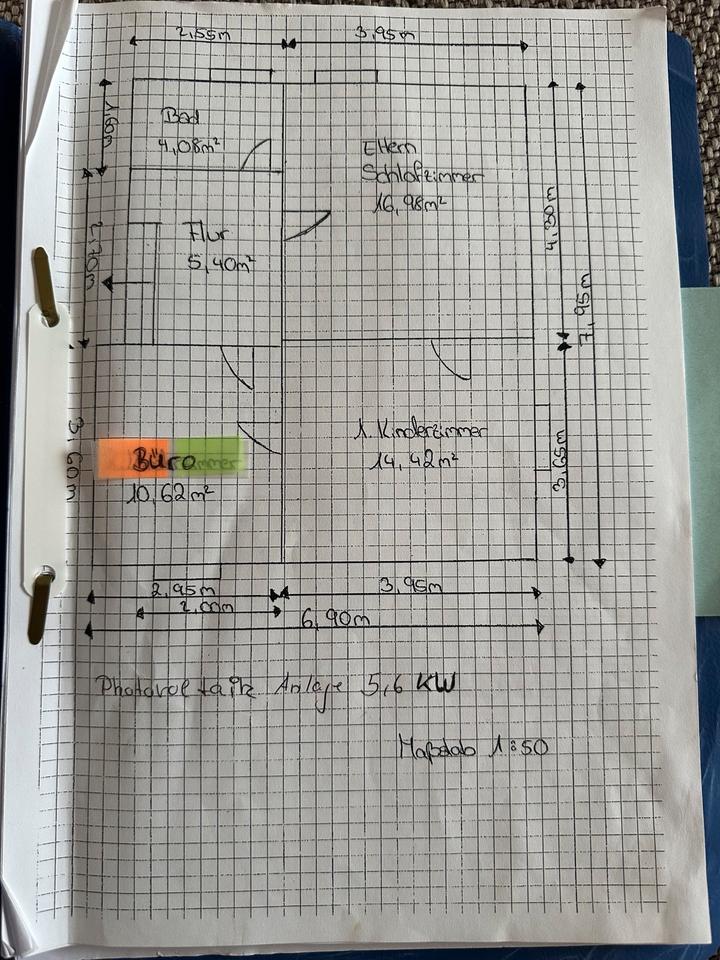 2,55m
3,95m
1,60m
Bad
4,08m²
Eltern
Schlafzimmer
16,98m²
4,30m
7,95m
2,70m
Flur
5,40m²
1. Kinderzimmer
14,42m²
3,65m
3,60m
Büro
10,62m²
2,95m
3,95m
2,00m
6,90m
Photovoltaik Anlage 5,6 KW
Maßstab 1:50